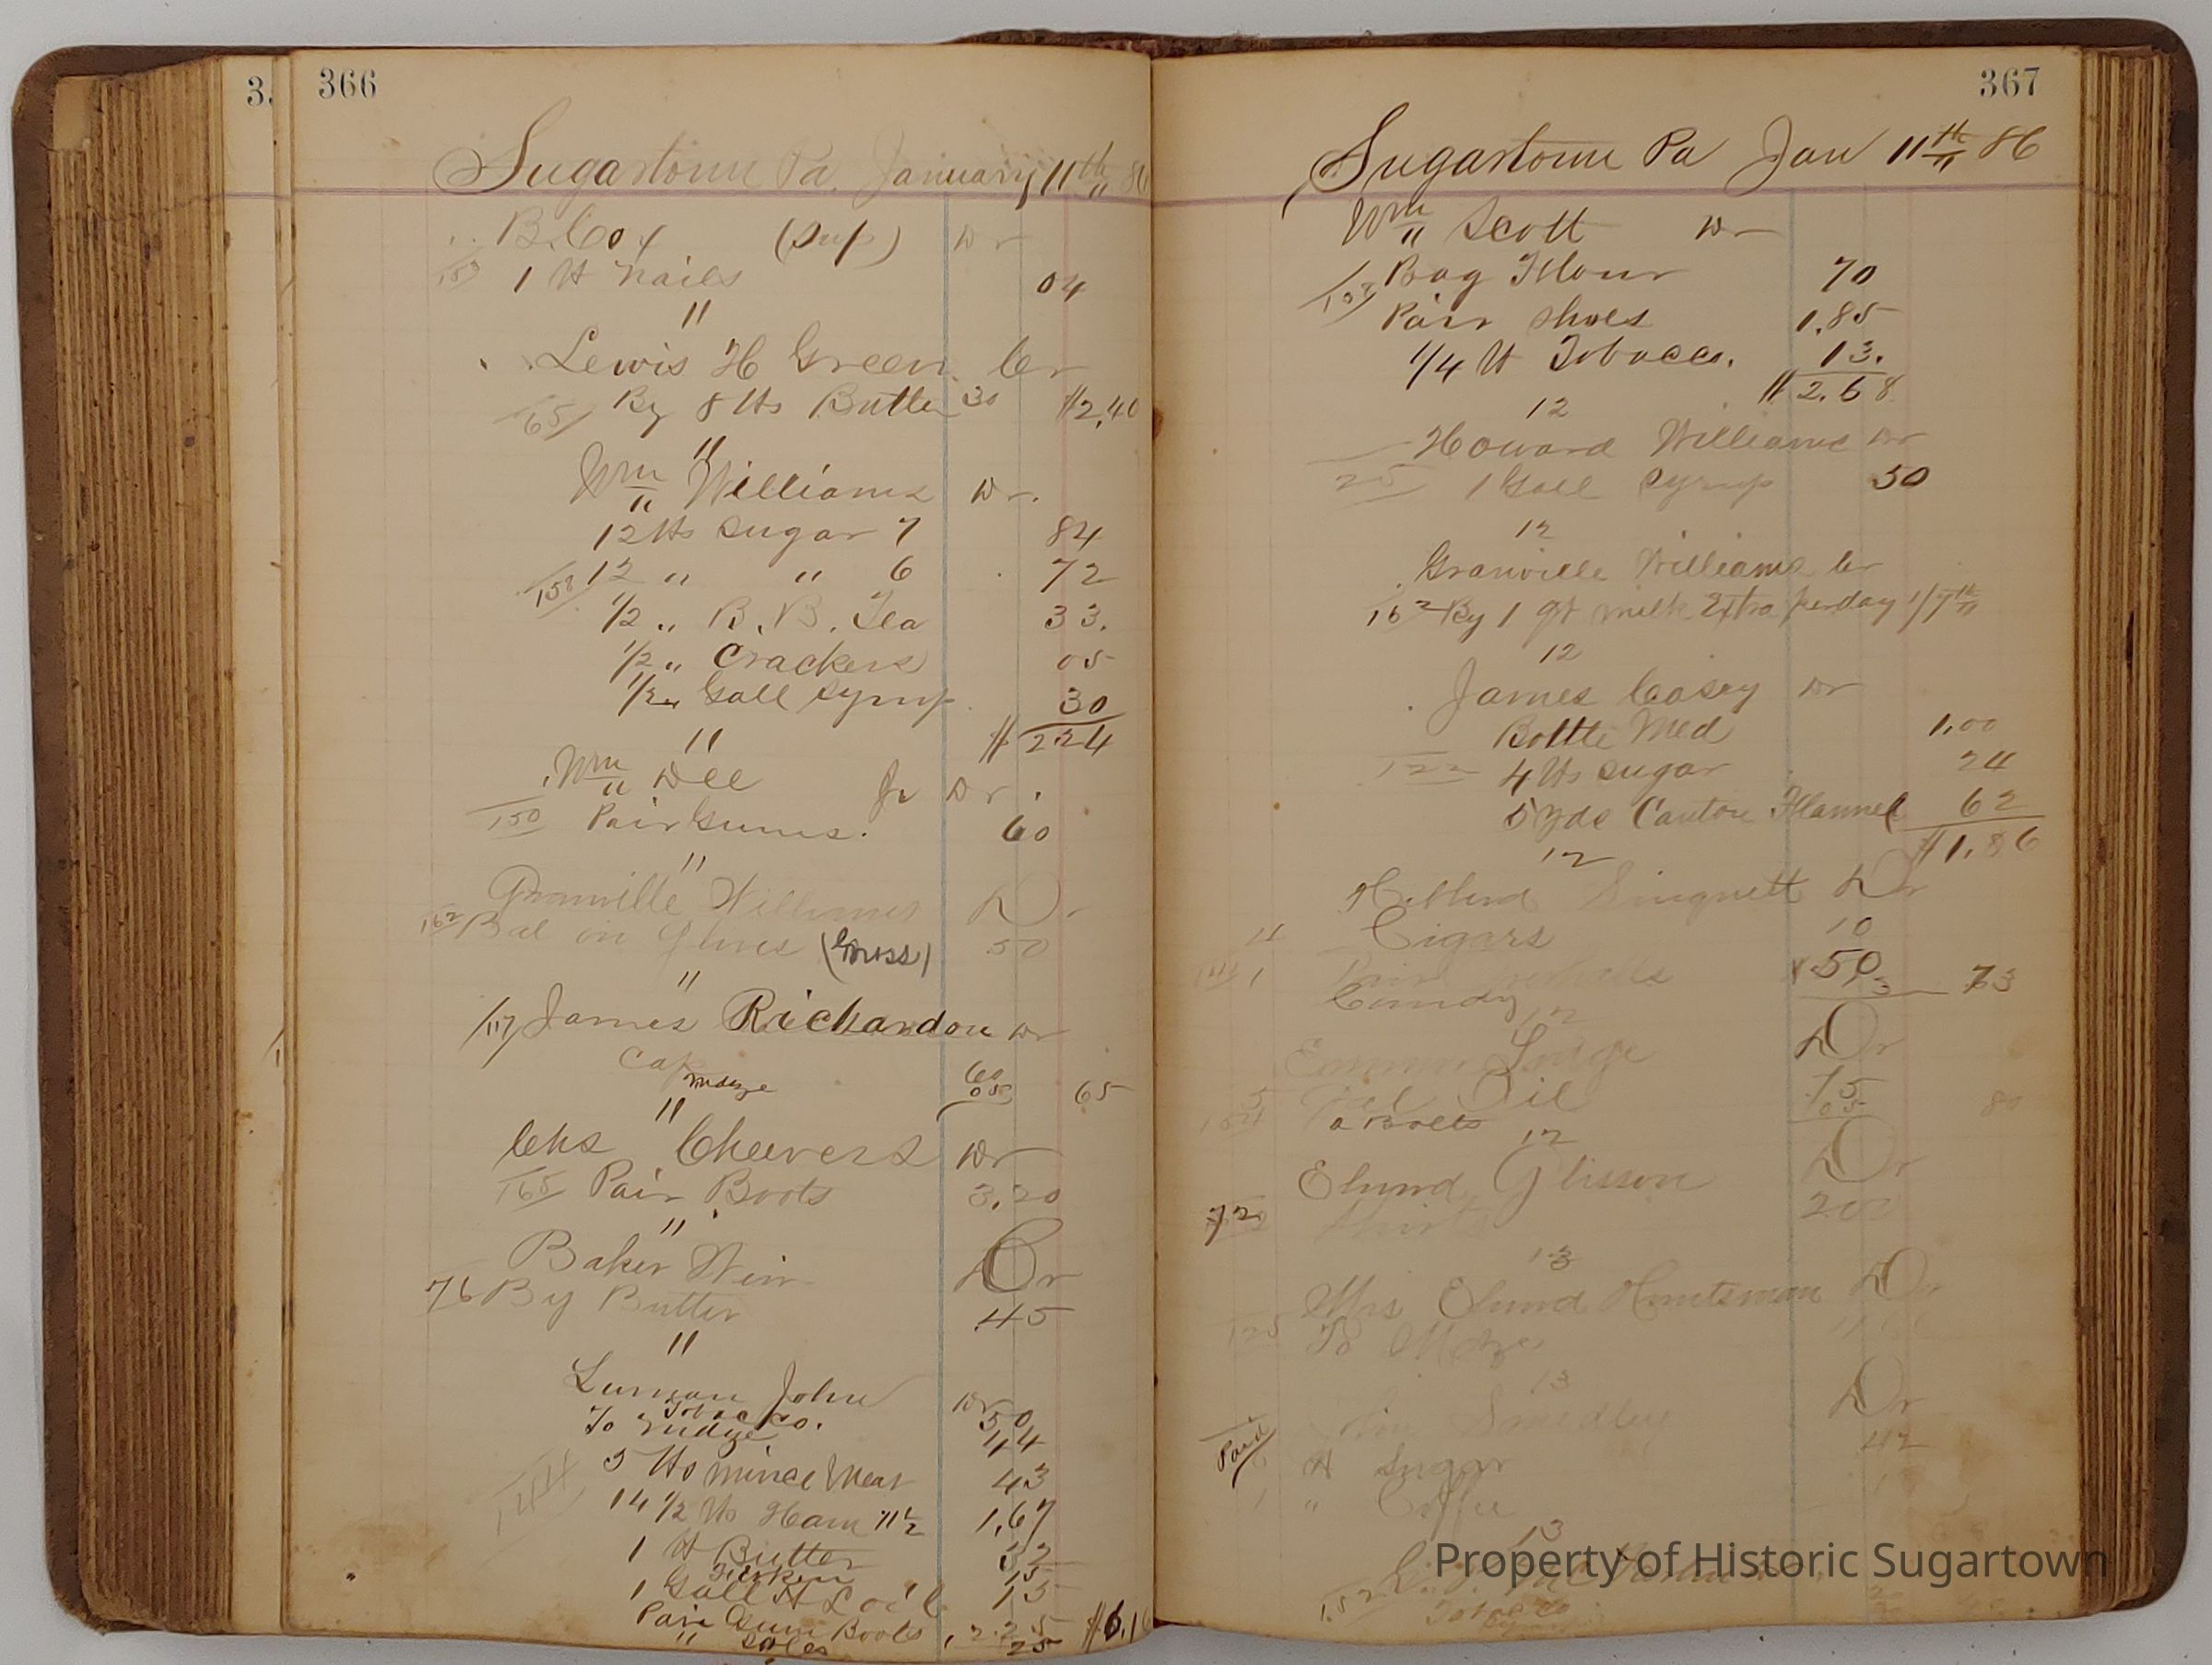 3.
366
Sugartown Pa. January 11th 86
B. Cox (Sup) Dr
153 1 lt nails 04
"
Lewis H Green Cr
65 By 8 lts Butter 30 $2,40
"
Wm Williams Dr.
12 lts Sugar 7 84
158 12 " " 6 72
1/2 " B. B. Tea 33.
1/2 " Crackers 05
1/2 " Gall Syrup 30
$ 224
"
Wm Dee Jr Dr.
150 Pair Gums. 60
"
Granville Williams Dr
162 Bal on Gloves (Miss) 50
"
117 James Richardson Dr
Cap 60
mdze 05 65
"
Chs Cheevers Dr
165 Pair Boots 3.20
"
Baker Cr
76 By Butter .45
"
John Dr
Tobacco. 50
To 44
5 lts mince Meat 43
144 14 1/2 lts Ham 11 1/2 1,67
1 lt Butter 32
15
1 Gall H L Oil 15
Pair Gum Boots 2.25
" Soles 25 $6.1
367
Sugartown Pa Jan 11th 86
Wm Scott Dr
Bag Flour 70
Pair Shoes 1.85
1/4 lt Tobacco. 13.
$2.68
12
Howard Williams Dr
25 1 Gall Syrup 50
12
Granville Williams Cr
162 By 1 qt milk Extra per day 1/7th
12
James Casey Dr
Bottle Med 1.00
122 4 lts Sugar 24
5 yds Canton Flannel 62
$1.86
12
Dr
Cigars 10
1 Pair 50
Candy 3 73
12
Lodge Dr
5 Oil 75
05 80
12
Elwood Glisson Dr
72 Shirts 200
13
Mrs Elwood Huntsman Dr
125 To Mdze
13
Smedley Dr
Paid
lt Sugar 42
1 " Coffee
13
152
Tobacco
Property of Historic Sugartown